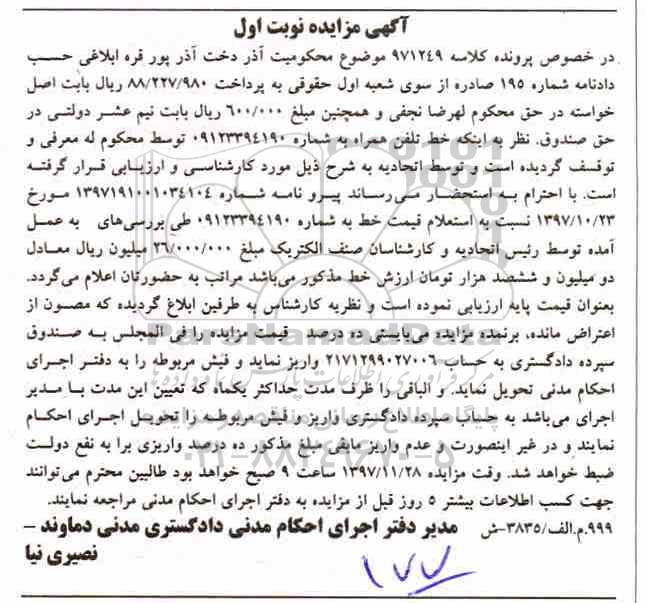 آگهی مزایده نوبت اول
در خصوص پرونده کلاسه ۹۷۱۲۴۹ موضوع محکومیت آذر دخت آذر پور قره ابلاغی حسب
دادنامه شماره ۱۹۵ صادره از سوی شعبه اول حقوقی به پرداخت ۸۸/۲۲۷/۹۸۰ ریال بابت اصل
خواسته در حق محکوم لهرضا نجفی و همچنین مبلغ ۶۰۰/۰۰۰ ریال بابت نیم عشر دولتی در
حق صندوق. نظر به اینکه خط تلفن همراه به شماره ۰۹۱۲۳۳۹۴۱۹۰ توسط محکوم له معرفی و
توقسف گردیده است و توسط اتحادیه به شرح ذیل مورد کارشناسی و ارزیابی قرار گرفته
است. با احترام به استحضار می‌رساند پیرو نامه شماره ۱۳۹۷۱۹۱۰۰۱۰۳۴۱۰۴ مورخ
۱۳۹۷/۱۰/۲۳ نسبت به استعلام قیمت خط به شماره ۰۹۱۲۳۳۹۴۱۹۰ طی بررسی‌های به عمل
آمده توسط رئیس اتحادیه و کارشناسان صنف الکتریک مبلغ ۲۶/۰۰۰/۰۰۰ میلیون ریال معادل
دو میلیون و ششصد هزار تومان ارزش خط مذکور می‌باشد مراتب به حضورتان اعلام می‌گردد.
بعنوان قیمت پایه ارزیابی نموده است و نظریه کارشناس به طرفین ابلاغ گردیده که مصون از
اعتراض مانده، برنده مزایده می‌بایستی ده درصد قیمت مزایده را فی المجلس به صندوق
سپرده دادگستری به حساب ۲۱۷۱۲۹۹۰۲۷۰۰۶ واریز نماید و قبش مربوطه را به دفتر اجرای
احکام مدنی تحویل نماید. و الباقی را ظرف مدت حداکثر یکماه که تعیین این مدت با مدیر
اجرای می‌باشد به حساب سپرده دادگستری واریز و قبش مربوطه را تحویل اجرای احکام
نمایند و در غیر اینصورت و عدم واریز مابقی مبلغ مذکور ده درصد واریزی برا به نفع دولت
ضبط خواهد شد. وقت مزایده ۱۳۹۷/۱۱/۲۸ ساعت ۹ صبح خواهد بود طالبین محترم می‌توانند
جهت کسب اطلاعات بیشتر ۵ روز قبل از مزایده به دفتر اجرای احکام مدنی مراجعه نمایند.
۹۹۹.م.الف/۳۸۳۵-ش مدیر دفتر اجرای احکام مدنی دادگستری مدنی دماوند –
نصیری نیا
۱۷۷
ParsNamadData
۰۲۱-۸۸۳۴۹۶۷۰-۵